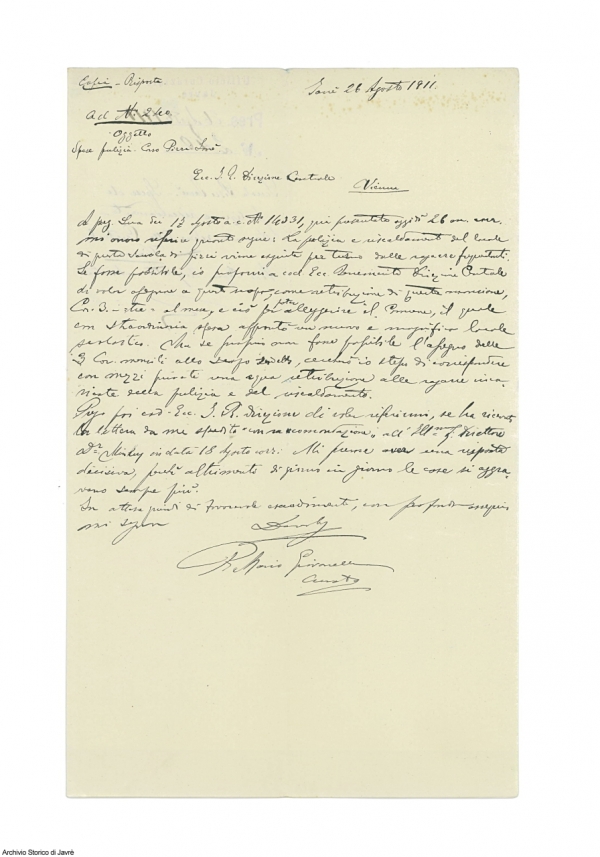 Copia - Risposta
Javrè 26 Agosto 1911.
Ad N.
Oggetto
Spese pulizia Corso Pizzi Javrè
Ecc. I. R. Direzione Centrale
Vienna
A preg. Sua del 17 Agosto a. c. N. 14331, qui pervenuta oggidì 26 m. corr.
mi onoro riferire quanto segue: La pulizia e riscaldamento del locale
di questa Scuola di pizzi viene eseguita per turno dalle ragazze frequentanti.
Se fosse possibile, io proporrei a cod. Ecc. Direzione Centrale
di voler assegnare a questo scopo, come retribuzione di questa mansione,
Cor. 3.- tre - al mese, e ciò per alleggerire il Comune, il quale
con straordinaria spesa approntò un nuovo e magnifico locale
scolastico. Ma se proprio non fosse possibile l'assegno delle
3 Cor. mensili allo scopo, cercherò io stesso di corrispondere
con mezzi privati una equa retribuzione alle ragazze inca
ricate della pulizia e del riscaldamento.
Prego poi cod. Ecc. I. R. Direzione di voler riferirmi, se ha ricevuto
la lettera da me spedita con raccomandazione, all' Ill.mo Direttore
Dr. in data 18 Agosto corr. Mi preme avere una risposta
decisiva, perchè altrimenti di giorno in giorno le cose si aggra
vano sempre più.
In attesa quindi di favorevole esaudimento, con profondo ossequio
mi segno
Devoto
Mario
Curato
Archivio Storico di Javrè